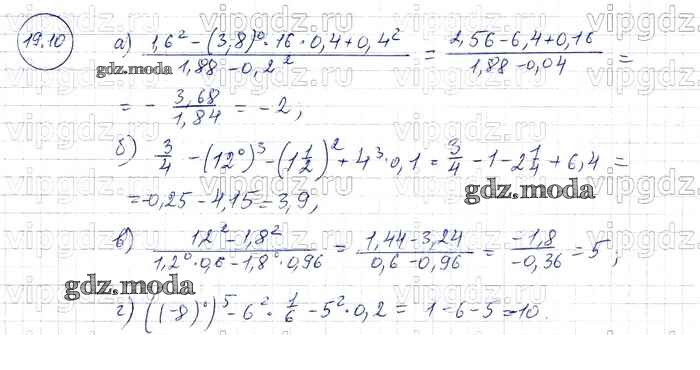 19.10 а) (1,6² − (3,8)⁰ · 16 · 0,4 + 0,4²) / (1,88 − 0,2²) = (2,56 − 6,4 + 0,16) / (1,88 − 0,04) =
gdz.moda
= − 3,68/1,84 = −2;
б) 3/4 − (12⁰)³ − (1 1/2)² + 4³ · 0,1 = 3/4 − 1 − 2 1/4 + 6,4 =
gdz.moda
= −0,25 − 4,15 = 3,9;
в) (12² − 1,8²) / (1,2⁰ · 0,6 − 1,8⁰ · 0,96) = (1,44 − 3,24) / (0,6 − 0,96) = −1,8 / −0,36 = 5;
gdz.moda
г) ((−8)⁰)⁵ − 6² · 1/6 − 5² · 0,2 = 1 − 6 − 5 = −10.
vipgdz.ru